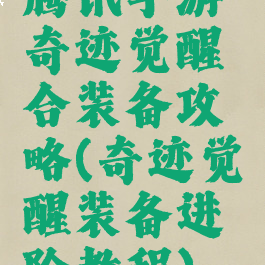 腾讯手游
奇迹觉醒
合装备攻
略(奇迹觉
醒装备进
阶教程)